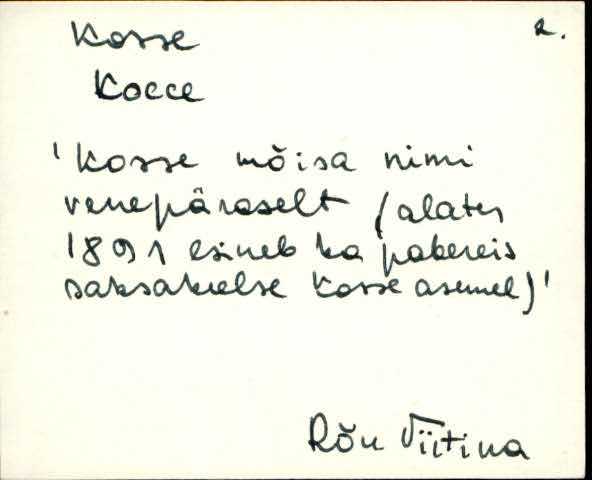 Kosse
r.
Kocce
'Kosse mõisa nimi
venepäraselt (alates
1891 esineb ka pabereis
saksakeelse Kosse asemel)'
Rõu Viitina